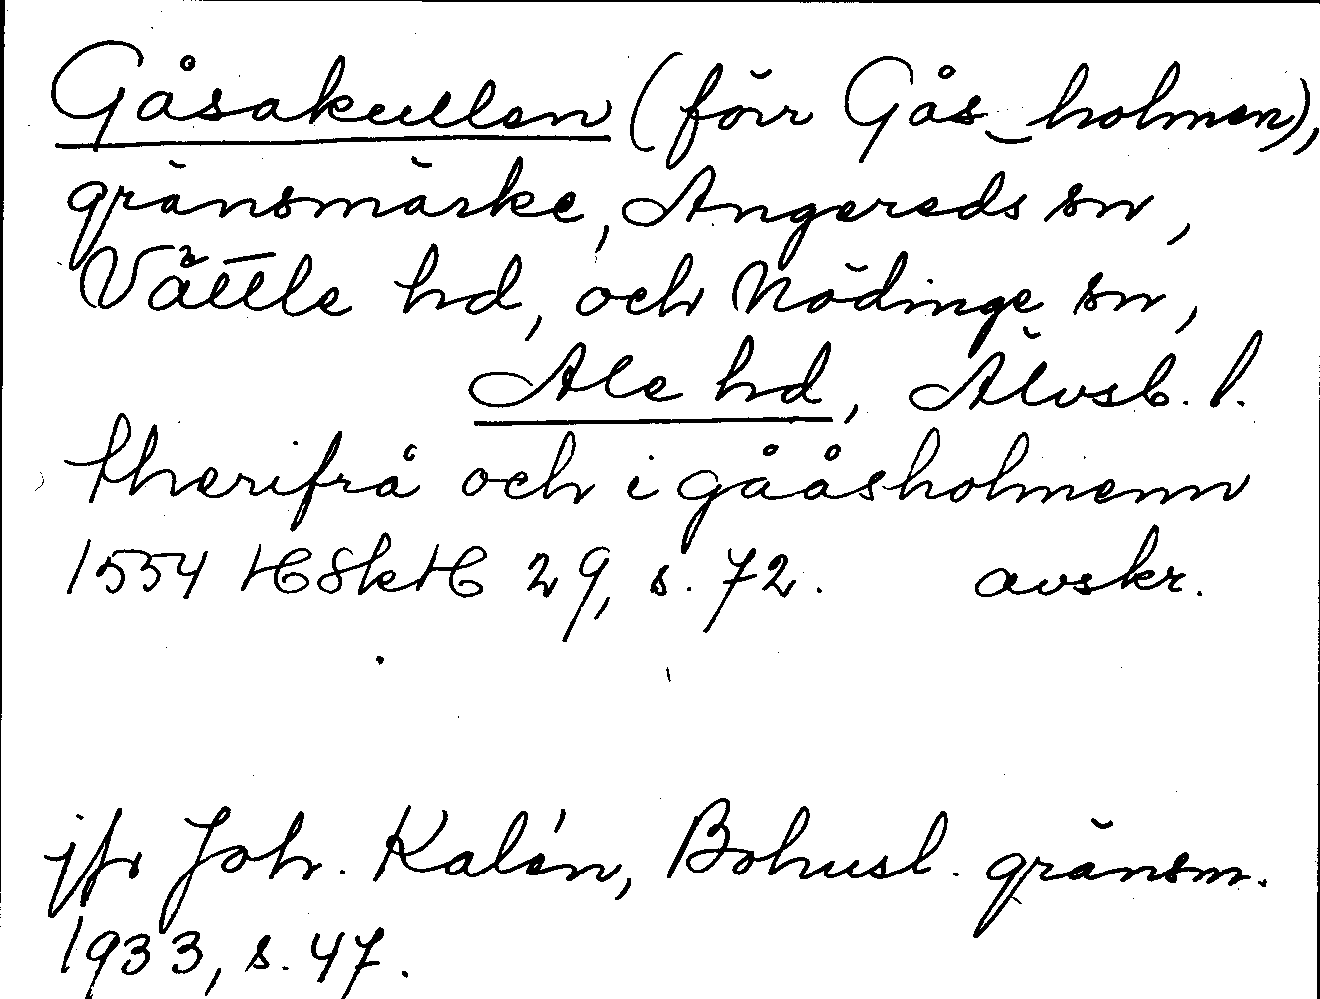 Gåsakullen (förr Gås_holmen),
gränsmärke, Angereds sn,
Vättle hd, och Nödinge sn,
Ale hd, Älvsb. l.
therifrå och i gååsholmenn
1554 HSkH 29, s. 72. avskr.
jfr Joh. Kalén, Bohusl. gränsm.
1933, s. 47.